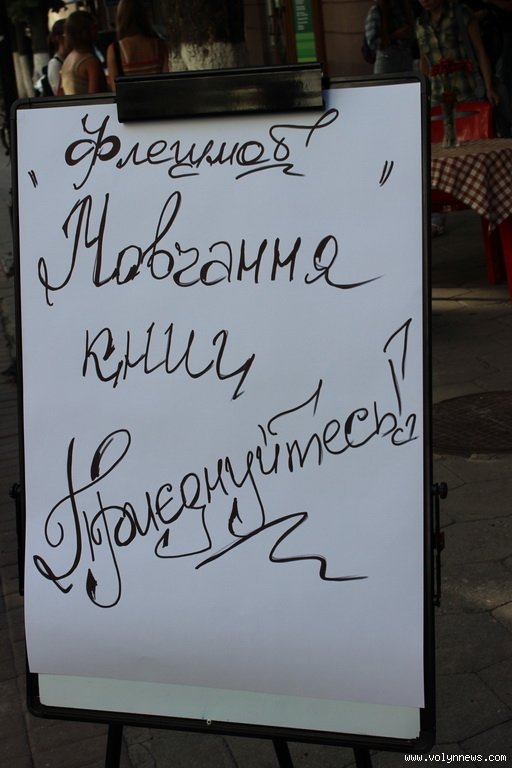 Флешмоб
"Мовчання"
книг
Приєднуйтесь!
www.volynnews.com